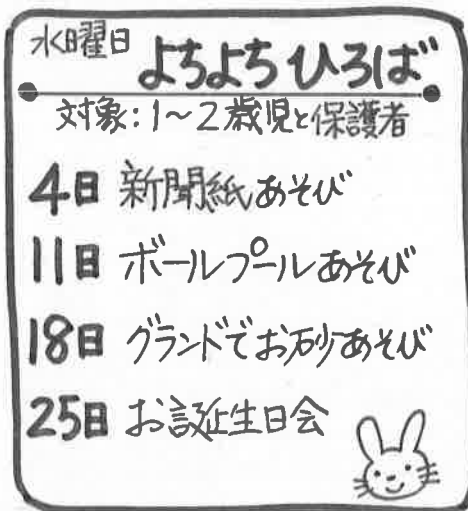 水曜日 よちよちひろば
対象:1〜2歳児と保護者
4日 新聞紙あそび
11日 ボールプールあそび
18日 グランドでお砂あそび
25日 お誕生日会